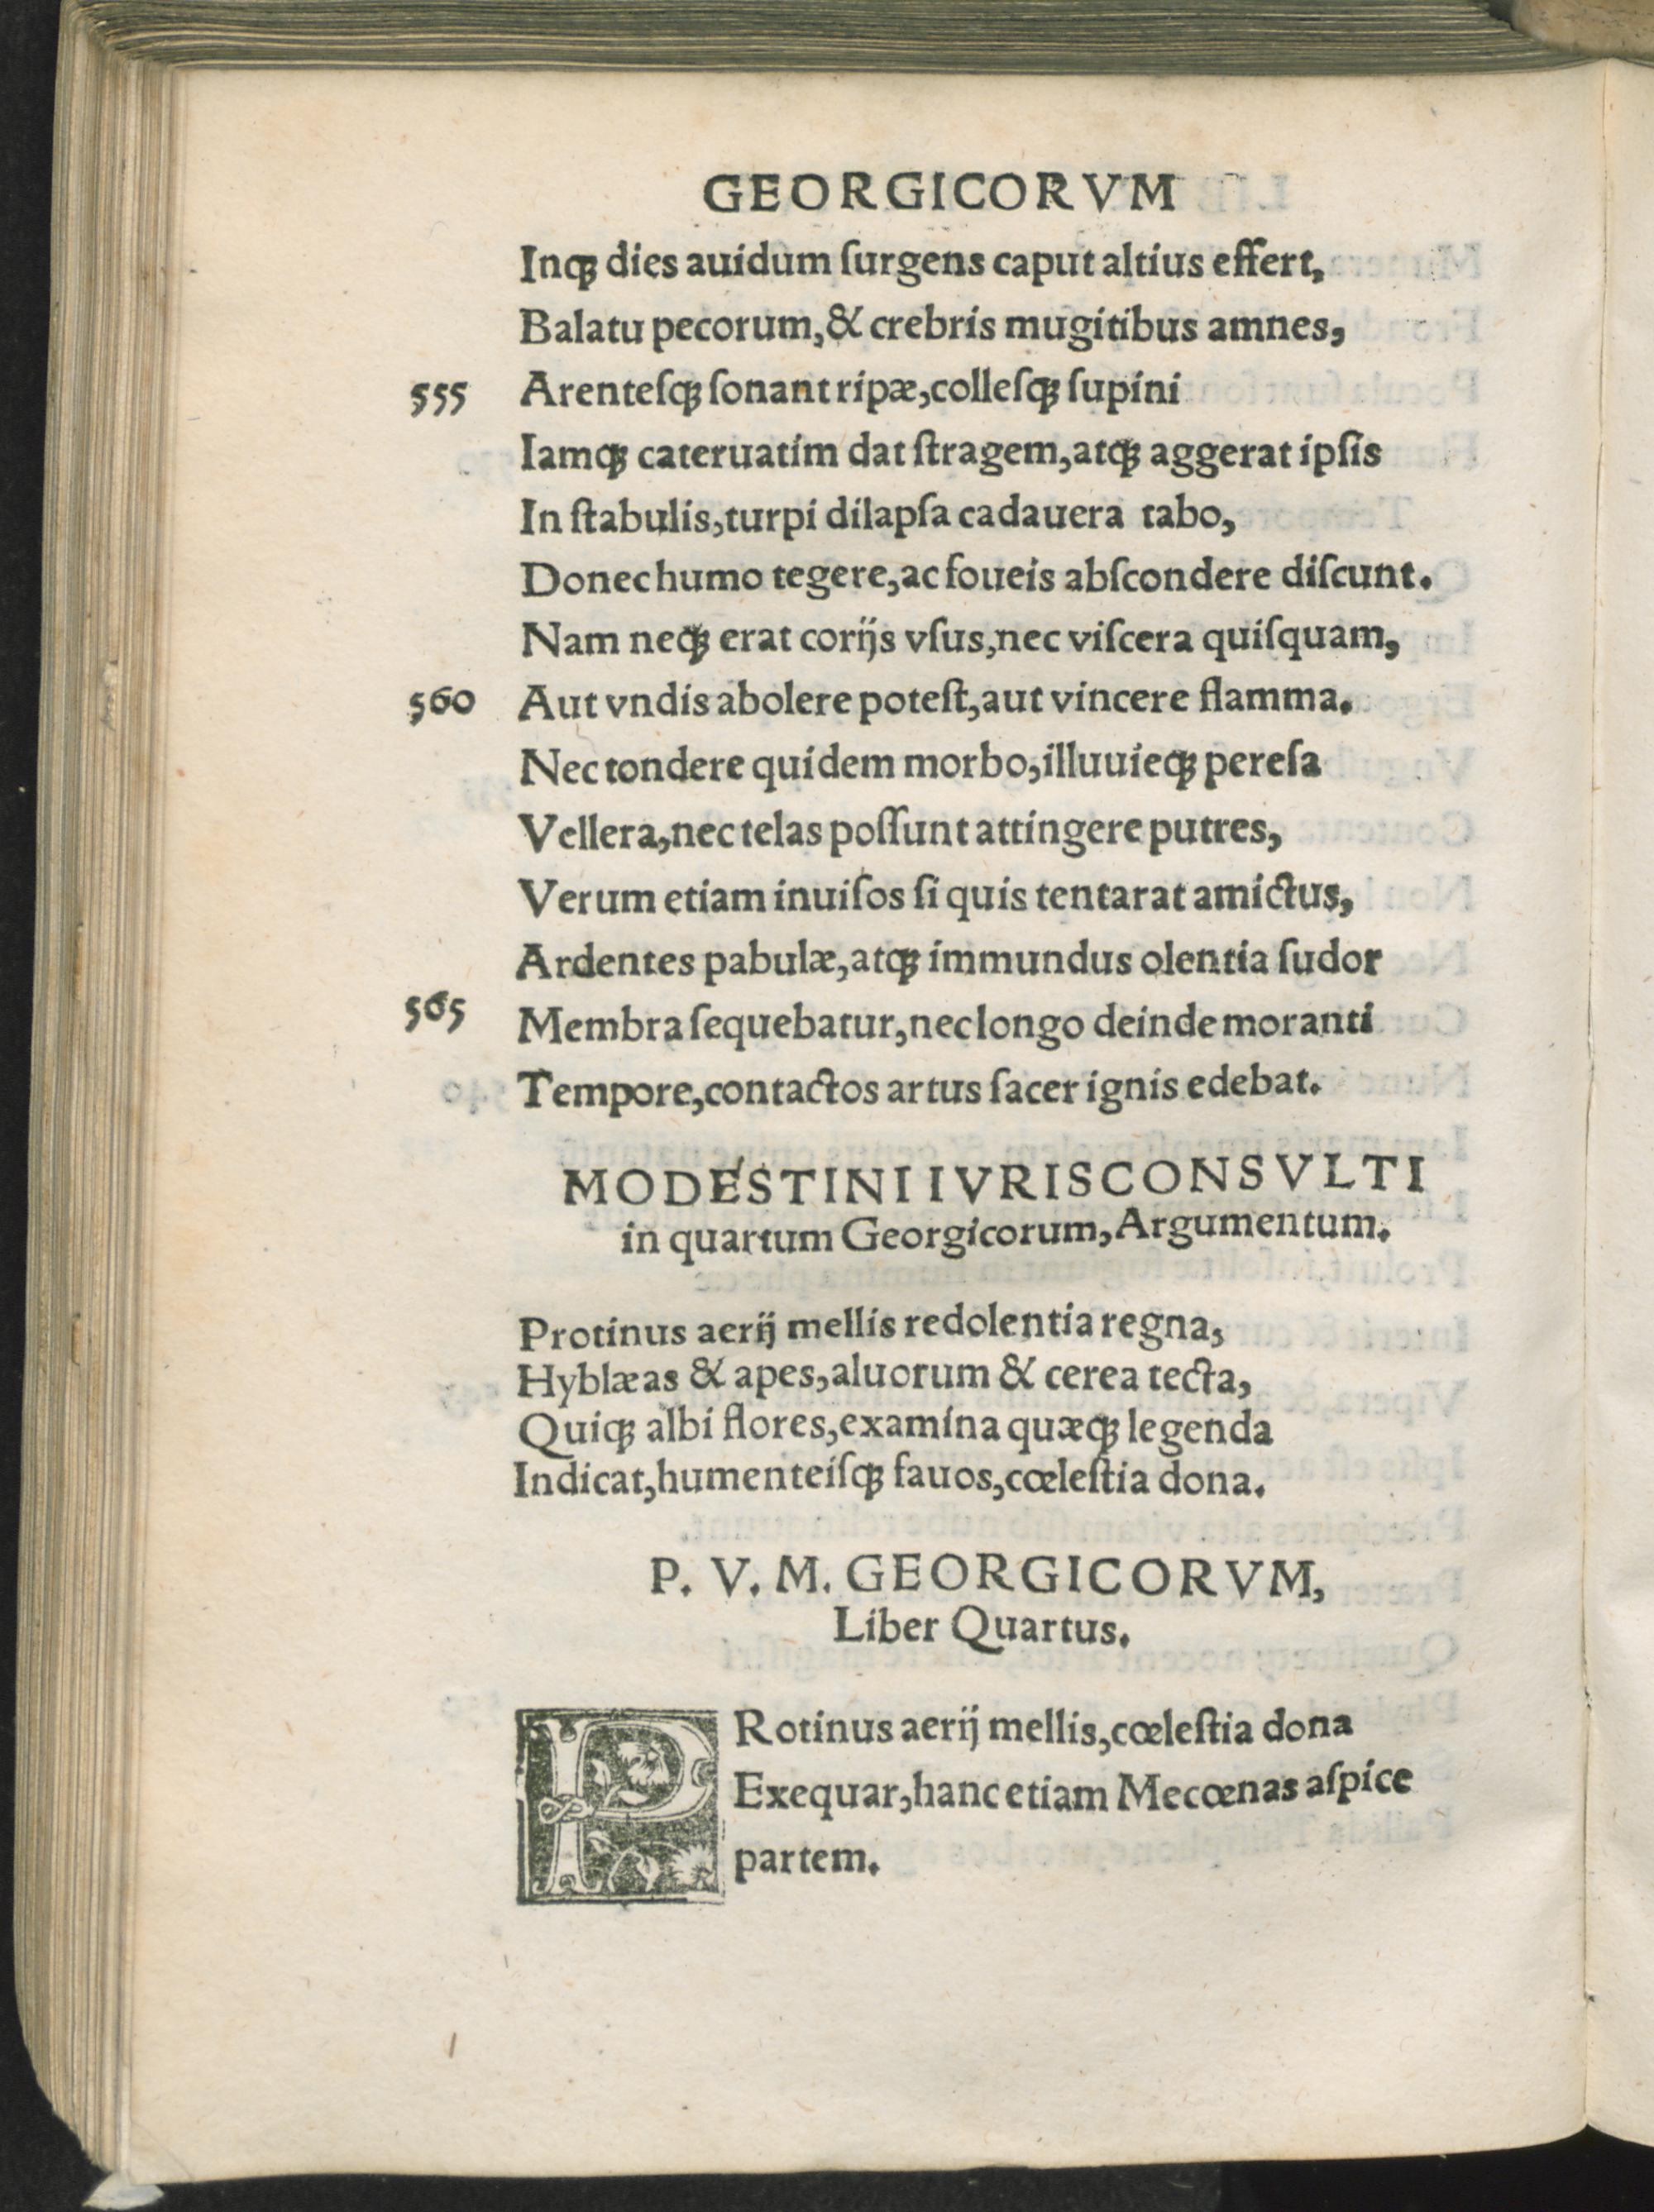 GEORGICORVM
Inqꝫ dies auidum ſurgens caput altius effert,
Balatu pecorum, & crebris mugitibus amnes,
555 Arenteſqꝫ ſonant ripæ, colleſqꝫ ſupini
Iamqꝫ cateruatim dat ſtragem, atqꝫ aggerat ipſis
In ſtabulis, turpi dilapſa cadauera tabo,
Donec humo tegere, ac foueis abſcondere diſcunt.
Nam neqꝫ erat corijs vſus, nec viſcera quiſquam,
560 Aut vndis abolere poteſt, aut vincere flamma.
Nec tondere quidem morbo, illuuieqꝫ pereſa
Vellera, nec telas poſſunt attingere putres,
Verum etiam inuiſos ſi quis tentarat amictus,
Ardentes pabulæ, atqꝫ immundus olentia ſudor
565 Membra ſequebatur, nec longo deinde moranti
Tempore, contactos artus ſacer ignis edebat.
MODESTINI IVRISCONSVLTI
in quartum Georgicorum, Argumentum.
Protinus aerij mellis redolentia regna,
Hyblæas & apes, aluorum & cerea tecta,
Quiqꝫ albi flores, examina quæqꝫ legenda
Indicat, humenteiſqꝫ fauos, cœleſtia dona.
P. V. M. GEORGICORVM,
Liber Quartus.
PRotinus aerij mellis, cœleſtia dona
Exequar, hanc etiam Mecœnas aſpice
partem.